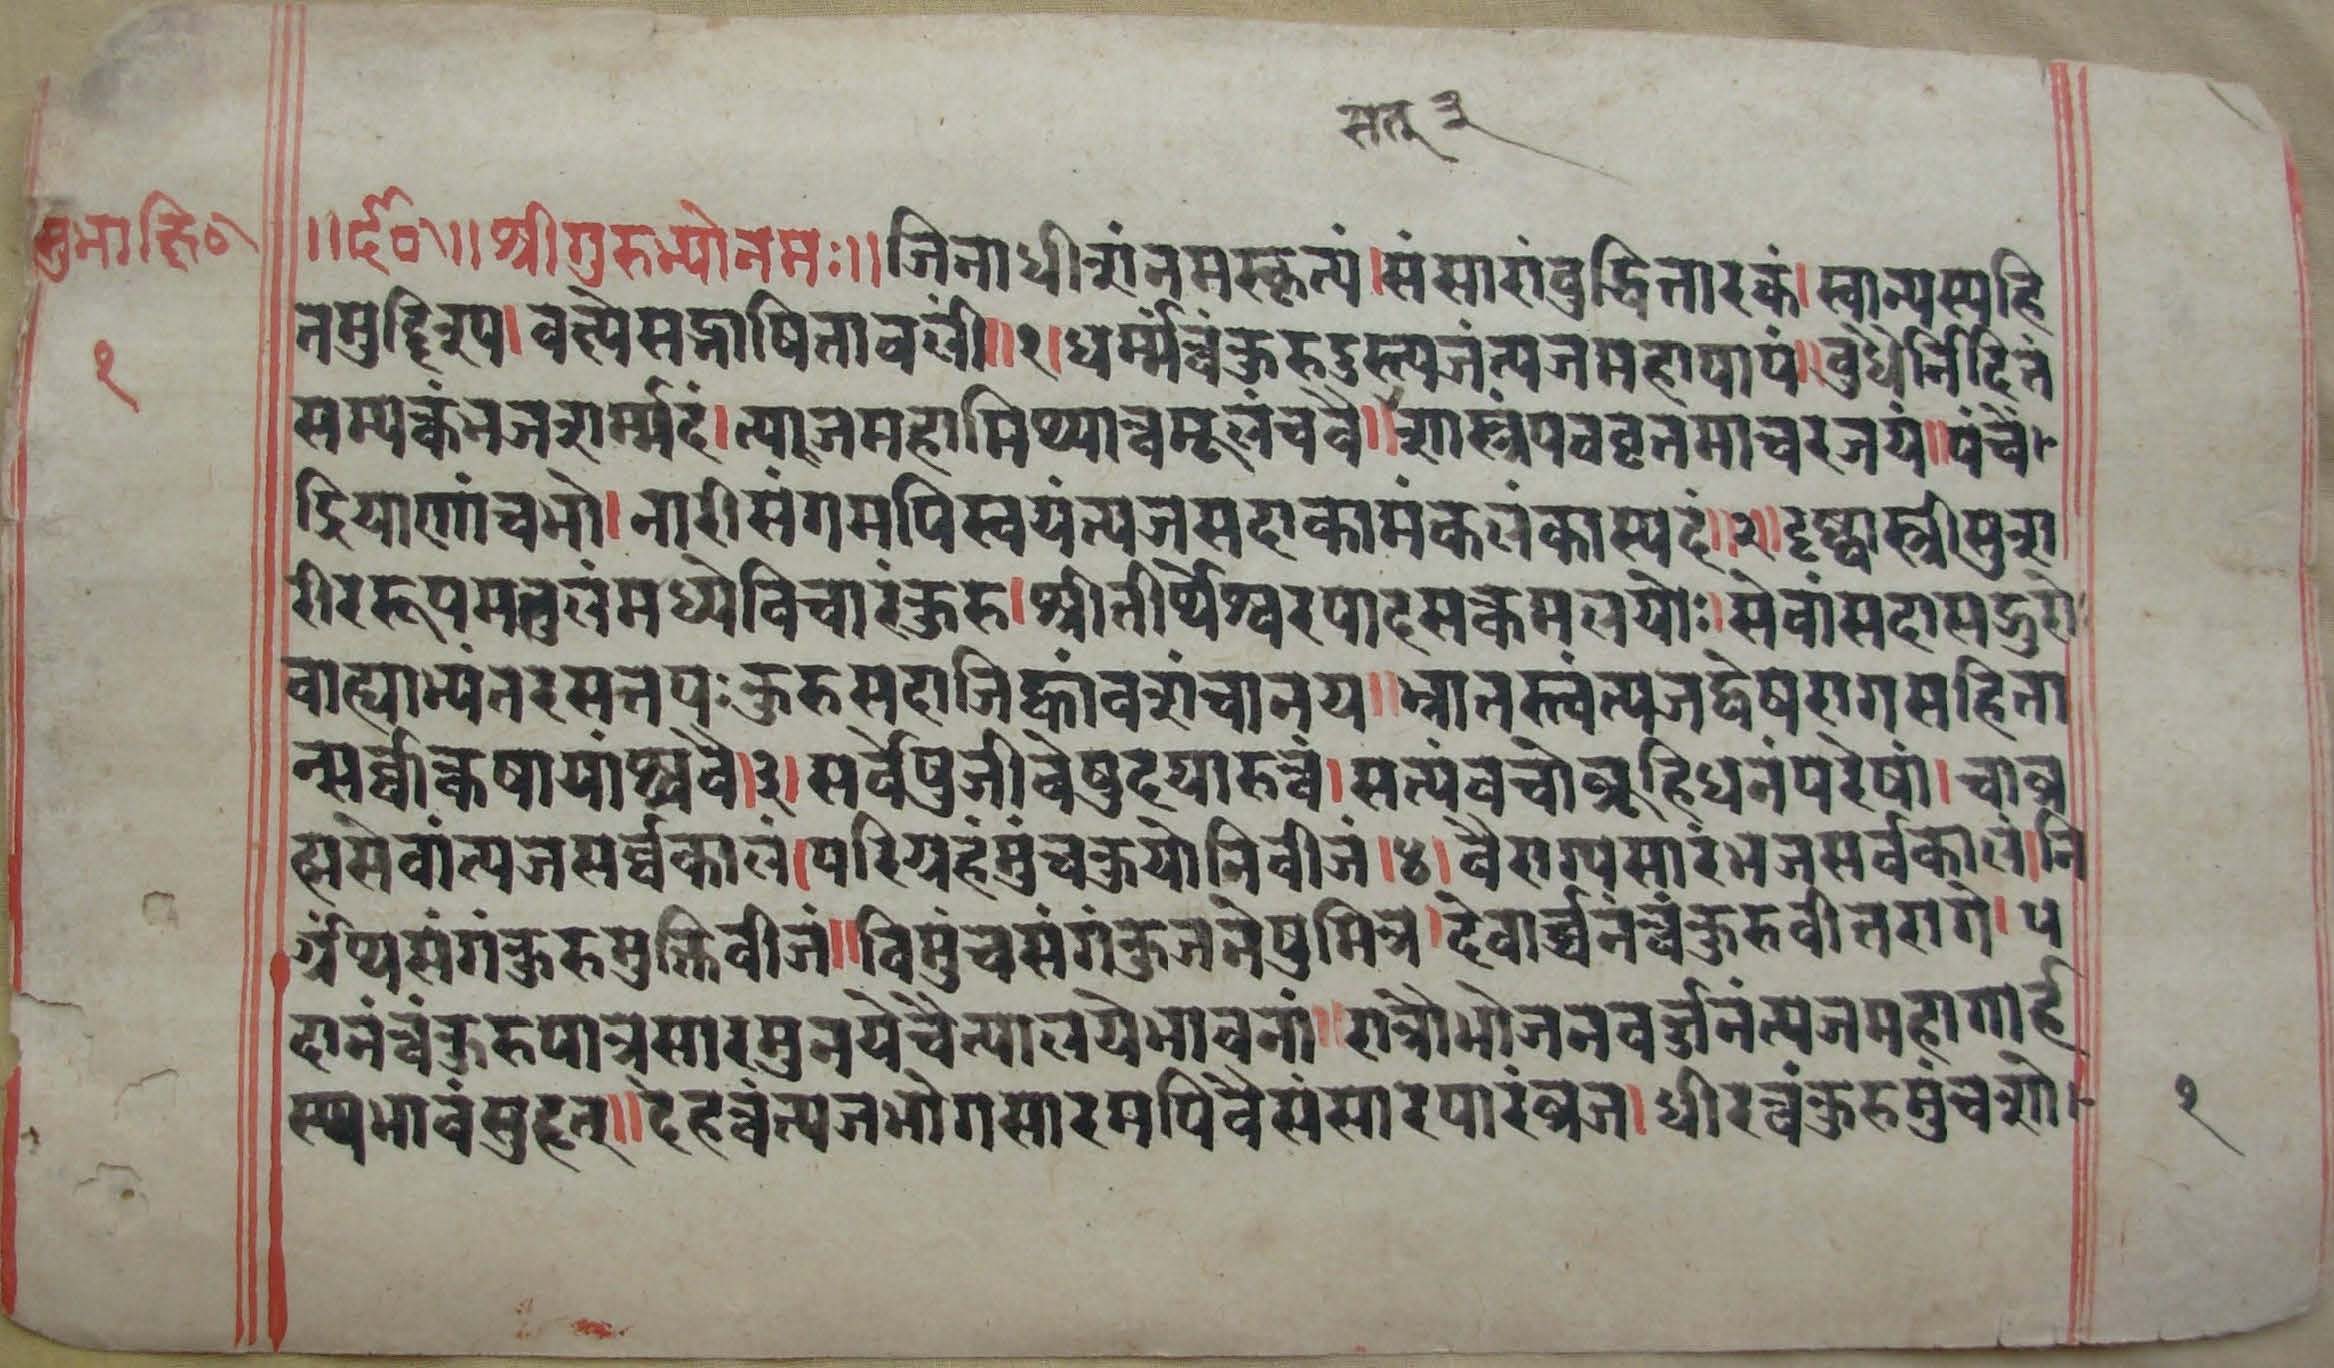 सत् ३
सुभाषि०
॥र्द०॥श्रीगुरुभ्योनमः॥जिनाधीशंनमस्कृत्यं।संसारांबुद्धितारकं।स्वान्यस्यहि
तमुद्दिश्य।वक्ष्येसद्भाषितावलीं॥१।धर्म्मंत्वंकुरुदुस्त्यजंत्यजमहापापं॥बुधैर्निंदितं
१
सम्यक्तंभजशर्म्मदं।त्याजमहामिथ्यात्वमूलंचवै॥शास्त्रंपठवृतमाचरजयं॥पंचें-
द्रियाणांचभो।नारीसंगमपिस्वयंत्यजसदाकामंकलंकास्पदं॥२॥दृष्ट्वास्त्रीसुशा
रीररूपमतुलंमध्येविचारंकुरु।श्रीतीर्थेश्वरपादसक्तमलयोः।सेवांसदासद्गुरोः
वाह्याभ्यंतरसत्तपःकुरुसदाजिह्वांवशंचानय॥भ्रातस्त्वंत्यजद्वेषरागसहिता
न्सर्व्वान्कषायांश्चवै।३।सर्वेषुजीवेषुदयारुत्वं।सत्यंवचोब्रूहिधनंपरेषां।चाब्र
ह्मसेवांत्यजसर्व्वकालं।परिग्रहंमुंचकुयोनिवीजं।४।वैराग्यसारंभजसर्वकालं॥नि
र्ग्रंथ्यसंगंकुरुमुक्तिवीजं॥विमुंचसंगंकुजनेषुमित्र।देवार्च्चनंत्वंकुरुवीतरागे।५
दानंत्वंकुरुपात्रसारमुनयेचैत्यालयेभावनां॥रात्रौभोजनवर्ज्जनंत्यजमहागार्ह
स्थ्यभावंसुहृत्॥देहत्वंत्यजभोगसारमपिवैसंसारपारंव्रज।धीरत्वंकुरुमुंचशो-
१